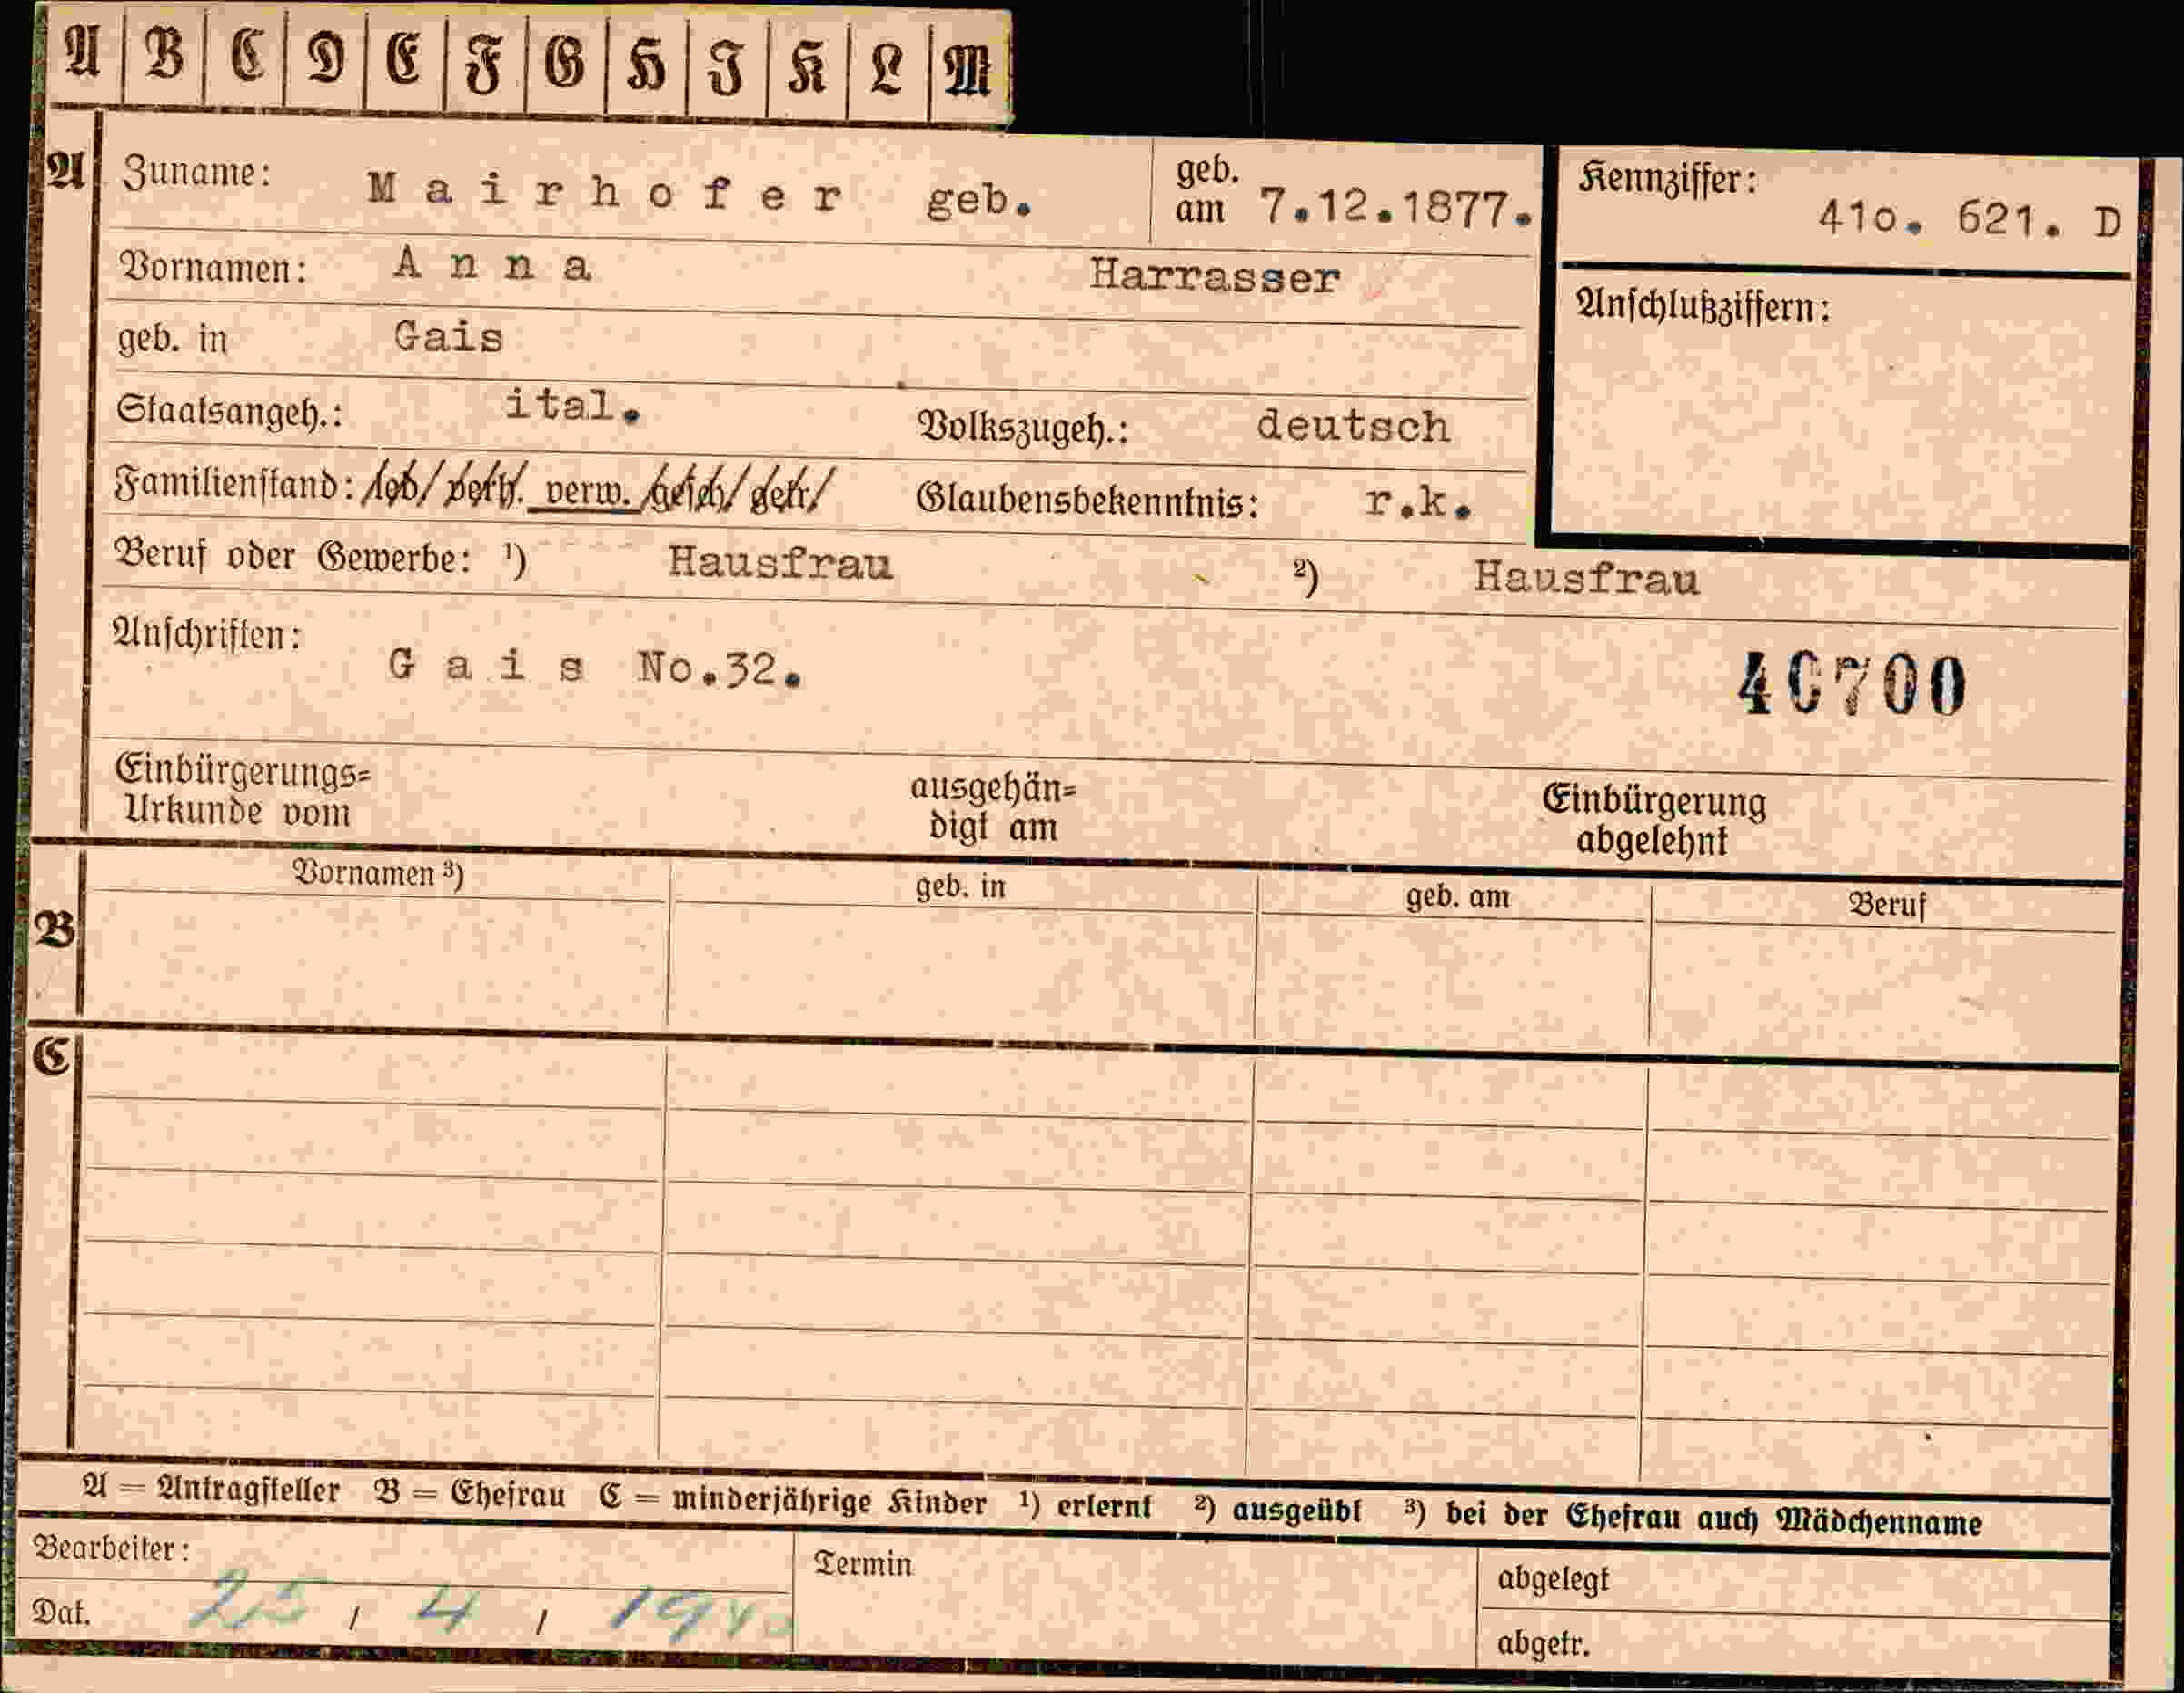 A B C D E F G H I K L M
A Zuname: Mairhofer geb. geb. am 7.12.1877. Kennziffer: 41o. 621. D
Vornamen: Anna Harrasser
Anschlußziffern:
geb. in Gais
Staatsangeh.: ital. Volkszugeh.: deutsch
Familienstand: led. verh. verw. gesch. getr. Glaubensbekenntnis: r.k.
Beruf oder Gewerbe: ¹) Hausfrau ²) Hausfrau
Anschriften: Gais No.32.
40700
Einbürgerungs= ausgehän= Einbürgerung
Urkunde vom digt am abgelehnt
B Vornamen ³) geb. in geb. am Beruf
C
A = Antragsteller B = Ehefrau C = minderjährige Kinder ¹) erlernt ²) ausgeübt ³) bei der Ehefrau auch Mädchenname
Bearbeiter: Termin abgelegt
Dat. 25 / 4 / 1940 abgetr.